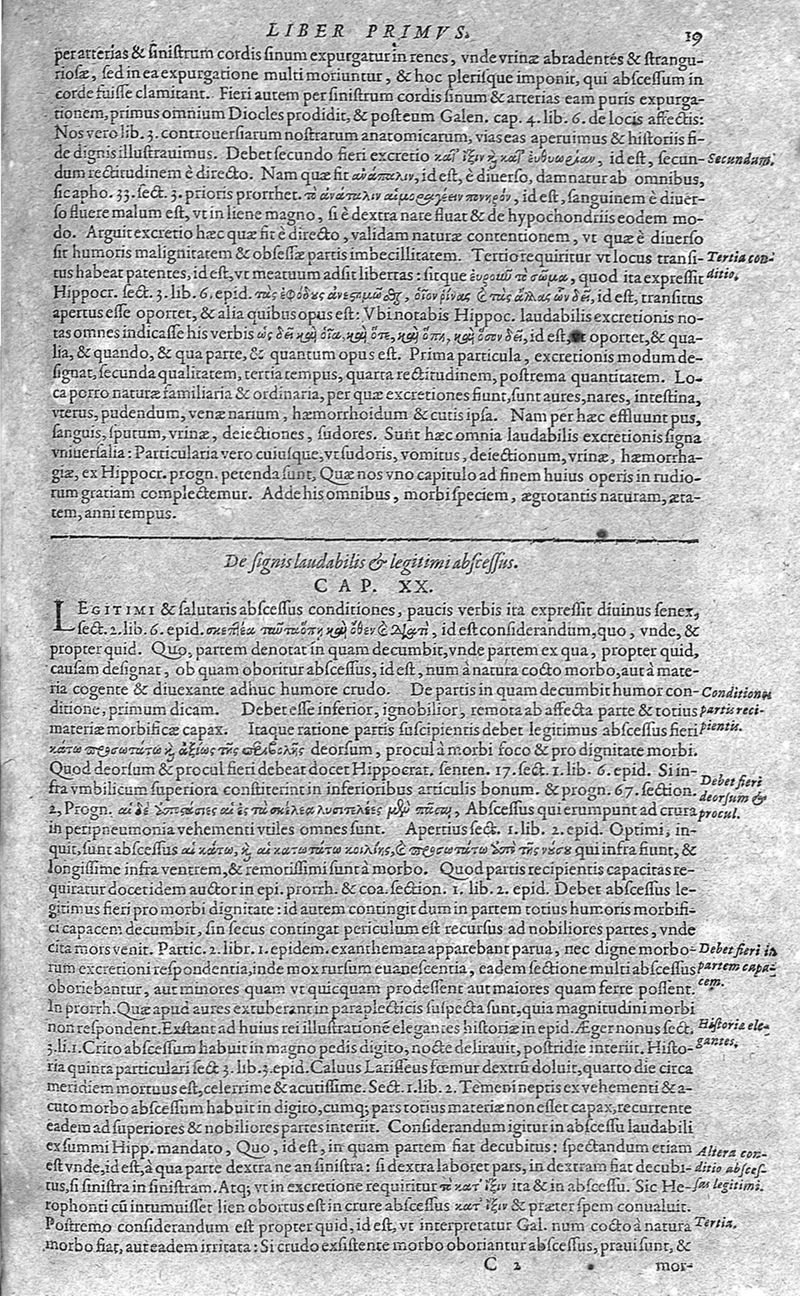 LIBER PRIMVS. 19
per arterias & sinistrum cordis sinum expurgatur in renes, vnde vrinæ abradentes & strangu-
riosæ, sed in ea expurgatione multi moriuntur, & hoc plerisque imponit, qui abscessum in
corde fuisse clamitant. Fieri autem per sinistrum cordis sinum & arterias eam puris expurga-
tionem, primus omnium Diocles prodidit, & post eum Galen. cap. 4. lib. 6. de locis affectis:
Nos vero lib. 3. controuersiarum nostrarum anatomicarum, vias eas aperuimus & historiis fi-
de dignis illustrauimus. Debet secundo fieri excretio κατ' ἴξιν καὶ κατ' εὐθυωρίαν, id est, secun-
Secundum.
dum rectitudinem è directo. Nam quæ fit ἀνάπαλιν, id est, è diuerso, damnatur ab omnibus,
sic apho. 33. sect. 3. prioris prorrhet. τὸ ἀνάπαλιν αἱμορραγέειν πονηρὸν, id est, sanguinem è diuer-
so fluere malum est, vt in liene magno, si è dextra nare fluat & de hypochondriis eodem mo-
do. Arguit excretio hæc quæ fit è directo, validam naturæ contentionem, vt quæ è diuerso
fit humoris malignitatem & obsessæ partis imbecillitatem. Tertio requiritur vt locus transi-
Tertia con-
tus habeat patentes, id est, vt meatuum adsit libertas: sitque εὔρουν τὸ σῶμα, quod ita expressit
ditio.
Hippocr. sect. 3. lib. 6. epid. τὰς ἐφόδους, οἷον ῥίνας καὶ τὰς ἄλλας ὧν δεῖ, id est, transitus
apertus esse oportet, & alia quibus opus est: Vbi notabis Hippoc. laudabilis excretionis no-
tas omnes indicasse his verbis ὡς δεῖ καὶ οἷα, καὶ ὅτε, καὶ ὅπη, καὶ ὅσον δεῖ, id est, oportet, & qua-
lia, & quando, & qua parte, & quantum opus est. Prima particula, excretionis modum de-
signat, secunda qualitatem, tertia tempus, quarta rectitudinem, postrema quantitatem. Lo-
ca porro naturæ familiaria & ordinaria, per quæ excretiones fiunt, sunt aures, nares, intestina,
vterus, pudendum, venæ narium, hæmorrhoidum & cutis ipsa. Nam per hæc effluunt pus,
sanguis, sputum, vrinæ, deiectiones, sudores. Sunt hæc omnia laudabilis excretionis signa
vniuersalia: Particularia vero cuiusque, vt sudoris, vomitus, deiectionum, vrinæ, hæmorrha-
giæ, ex Hippocr. progn. petenda sunt, Quæ nos vno capitulo ad finem huius operis in rudio-
rum gratiam complectemur. Adde his omnibus, morbi speciem, ægrotantis naturam, æta-
tem, anni tempus.
De signis laudabilis & legitimi abscessus.
CAP. XX.
LEGITIMI & salutaris abscessus conditiones, paucis verbis ita expressit diuinus senex,
sect. 2. lib. 6. epid. σκεπτέα ταῦτα ὅπη καὶ ὅθεν καὶ διατὶ, id est considerandum, quo, vnde, &
propter quid. Quo, partem denotat in quam decumbit, vnde partem ex qua, propter quid,
causam designat, ob quam oboritur abscessus, id est, num à natura cocto morbo, aut à mate-
ria cogente & diuexante adhuc humore crudo. De partis in quam decumbit humor con-
Conditiones
ditione, primum dicam. Debet esse inferior, ignobilior, remota ab affecta parte & totius
partis reci-
materiæ morbificæ capax. Itaque ratione partis suscipientis debet legitimus abscessus fieri
pientis.
κάτω προσωτάτω καὶ ἀξίως τῆς περιβολῆς deorsum, procul à morbi foco & pro dignitate morbi.
Quod deorsum & procul fieri debeat docet Hippocrat. senten. 17. sect. 1. lib. 6. epid. Si in-
Debet fieri
fra vmbilicum superiora constiterint in inferioribus articulis bonum. & progn. 67. section.
deorsum &
2, Progn. αἱ δὲ ἀποστάσιες αἱ ἐς τὰ σκέλεα λυσιτελέες μὲν πᾶσαι, Abscessus qui erumpunt ad crura
procul.
in peripneumonia vehementi vtiles omnes sunt. Apertius sect. 1. lib. 2. epid. Optimi, in-
quit, sunt abscessus αἱ κάτω, καὶ αἱ κατωτάτω κοιλίης, καὶ προσωτάτω ἀπὸ τῆς νούσου qui infra fiunt, &
longissime infra ventrem, & remotissimi sunt à morbo. Quod partis recipientis capacitas re-
quiratur docet idem auctor in epi. prorrh. & coa. section. 1. lib. 2. epid. Debet abscessus le-
gitimus fieri pro morbi dignitate: id autem contingit dum in partem totius humoris morbifi-
ci capacem decumbit, sin secus contingat periculum est recursus ad nobiliores partes, vnde
cita mors venit. Partic. 2. libr. 1. epidem. exanthemata apparebant parua, nec digne morbo-
Debet fieri in
rum excretioni respondentia, inde mox rursum euanescentia, eadem sectione multi abscessus
partem capa-
oboriebantur, aut minores quam vt quicquam prodessent aut maiores quam ferre possent.
cem.
In prorrh. Quæ apud aures extuberant in paraplecticis suspecta sunt, quia magnitudini morbi
non respondent. Exstant ad huius rei illustrationē elegantes historiæ in epid. Æger nonus sect.
Historia ele-
3. li. 1. Crito abscessum habuit in magno pedis digito, nocte delirauit, postridie interiit. Histo-
gantes.
ria quinta particulari sect 3. lib. 3. epid. Caluus Larisseus fœmur dextrū doluit, quarto die circa
meridiem mortuus est, celerrime & acutissime. Sect. 1. lib. 2. Temeni neptis ex vehementi & a-
cuto morbo abscessum habuit in digito, cumq; pars totius materiæ non esset capax, recurrente
eadem ad superiores & nobiliores partes interiit. Considerandum igitur in abscessu laudabili
ex summi Hipp. mandato, Quo, id est, in quam partem fiat decubitus: spectandum etiam
Altera con-
est vnde, id est, à qua parte dextra ne an sinistra: si dextra laboret pars, in dextram fiat decubi-
ditio absces-
tus, si sinistra in sinistram. Atq; vt in excretione requiritur τὸ κατ' ἴξιν ita & in abscessu. Sic He-
sus legitimi.
rophonti cū intumuisset lien obortus est in crure abscessus κατ' ἴξιν & præter spem conualuit.
Postremo considerandum est propter quid, id est, vt interpretatur Gal. num cocto à natura
Tertia.
morbo fiat, aut eadem irritata: Si crudo exsistente morbo oboriantur abscessus, praui sunt, &
C 2 mor-